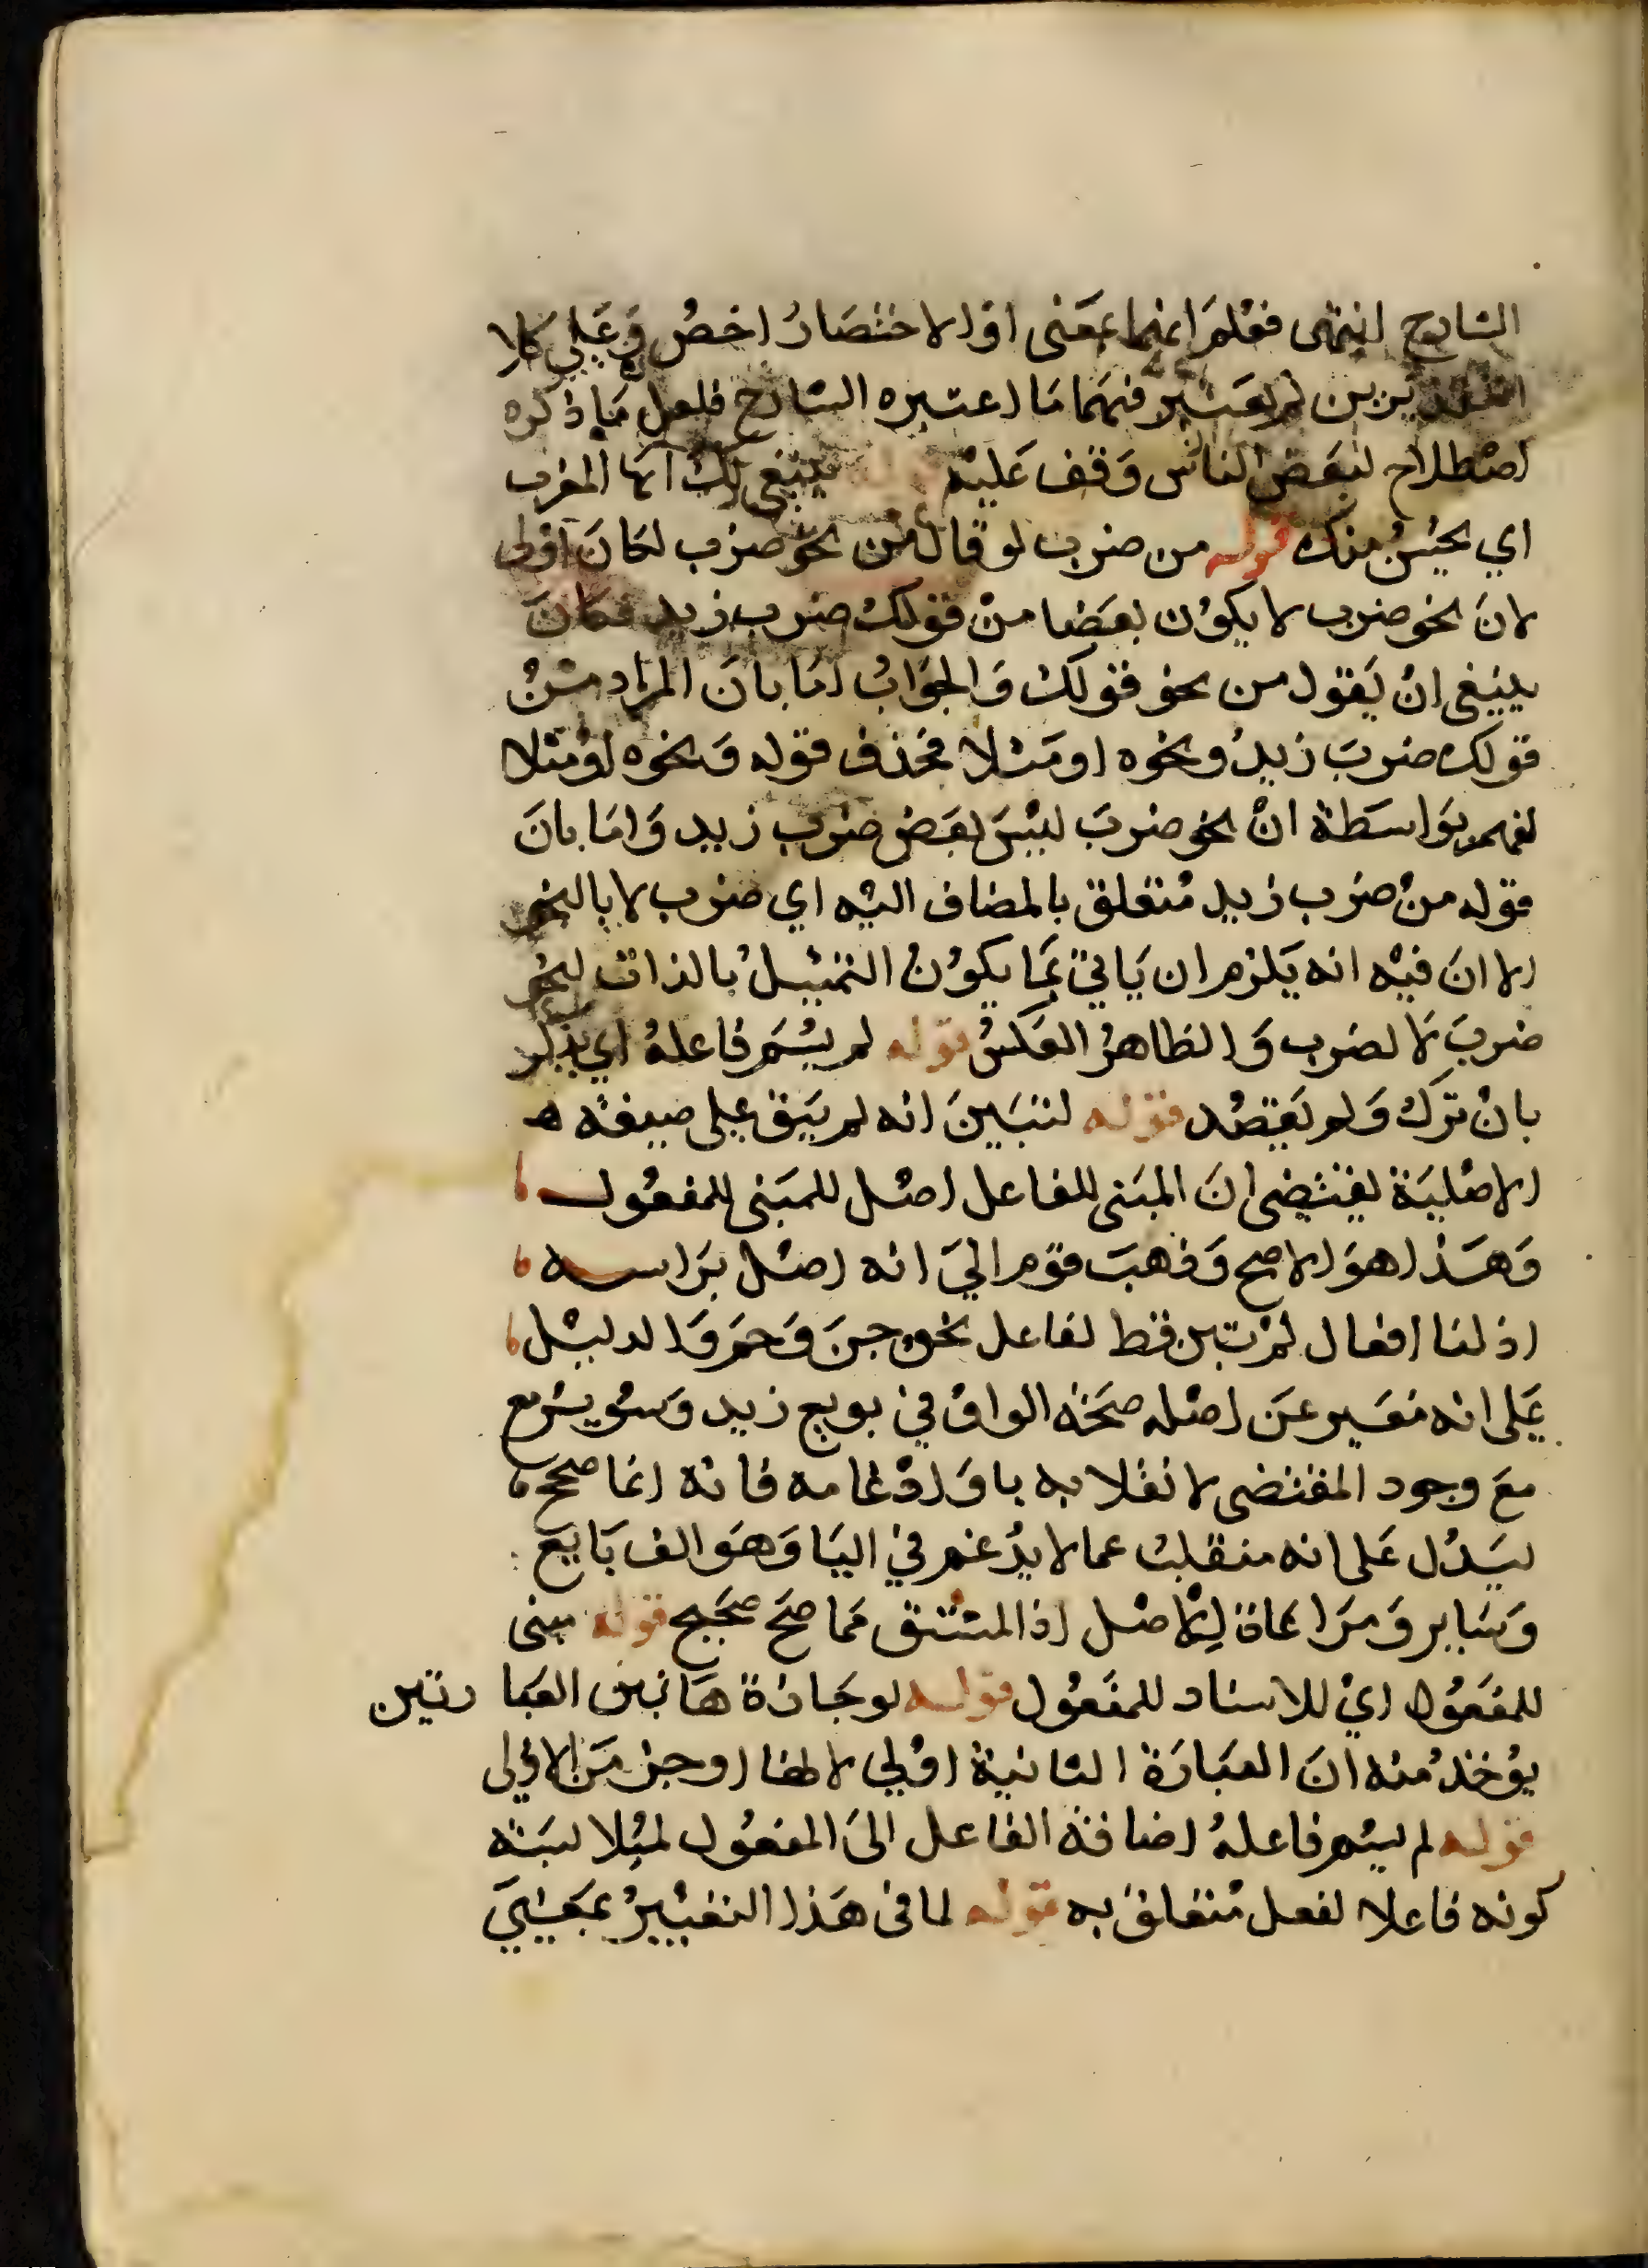 الشارح انتهى فعلم انهما بمعنى او الاختصار اخص وعلى كلا
التقديرين لم يعتبر فيهما ما اعتبره الشارح فلعل ما ذكره
اصطلاح لبعض الناس وقف عليه ينبغي لك ايها المعرب
اي يحسن منك قوله من ضرب لو قال من نحو ضرب لكان اولى
لان نحو ضرب لا يكون بعضا من قولك ضرب زيد فكان
ينبغي ان يقول من نحو قولك والجواب اما بان المراد من
قولك ضرب زيد ونحوه او مثلا فحذف قوله ونحوه او مثلا
لفهمه بواسطة ان نحو ضرب ليس بعض ضرب زيد واما بان
قوله من ضرب زيد متعلق بالمضاف اليه اي ضرب لا بالنحو
الا ان فيه انه يلزم ان ياتي بما يكون التمثيل بالذات لنحو
ضرب لا لضرب والظاهر العكس قوله لم يسم فاعله اي يذكر
بان ترك ولم يقصد قوله لتبين انه لم يبق على صيغته
الاصلية يقتضي ان المبني للفاعل اصل للمبني للمفعول
وهذا هو الاصح وذهب قوم الي انه اصل براسه
اذ لنا افعال لم تبن قط لفاعل نحو جن وحم والدليل
على انه مغير عن اصله صحة الواو في بويع زيد وسوير مع
مع وجود المقتضى لانقلابه يا وادغامه فانه انما صحح
ليدل على انه منقلب عما لا يدغم في اليا وهو الف بايع
وساير ومراعاة للاصل اذ المشتق مما صح صحيح قوله مبنى
للمفعول اي للاسناد للمفعول قوله لوجازة هاتين العبا رتين
يوخذ منه ان العبارة الثانية اولي لانها اوجز من الاولى
قوله لم يسم فاعله اضافة الفاعل الى المفعول لملابسته
كونه فاعلا لفعل متعلق به قوله لما في هذا التغيير بمجيئي